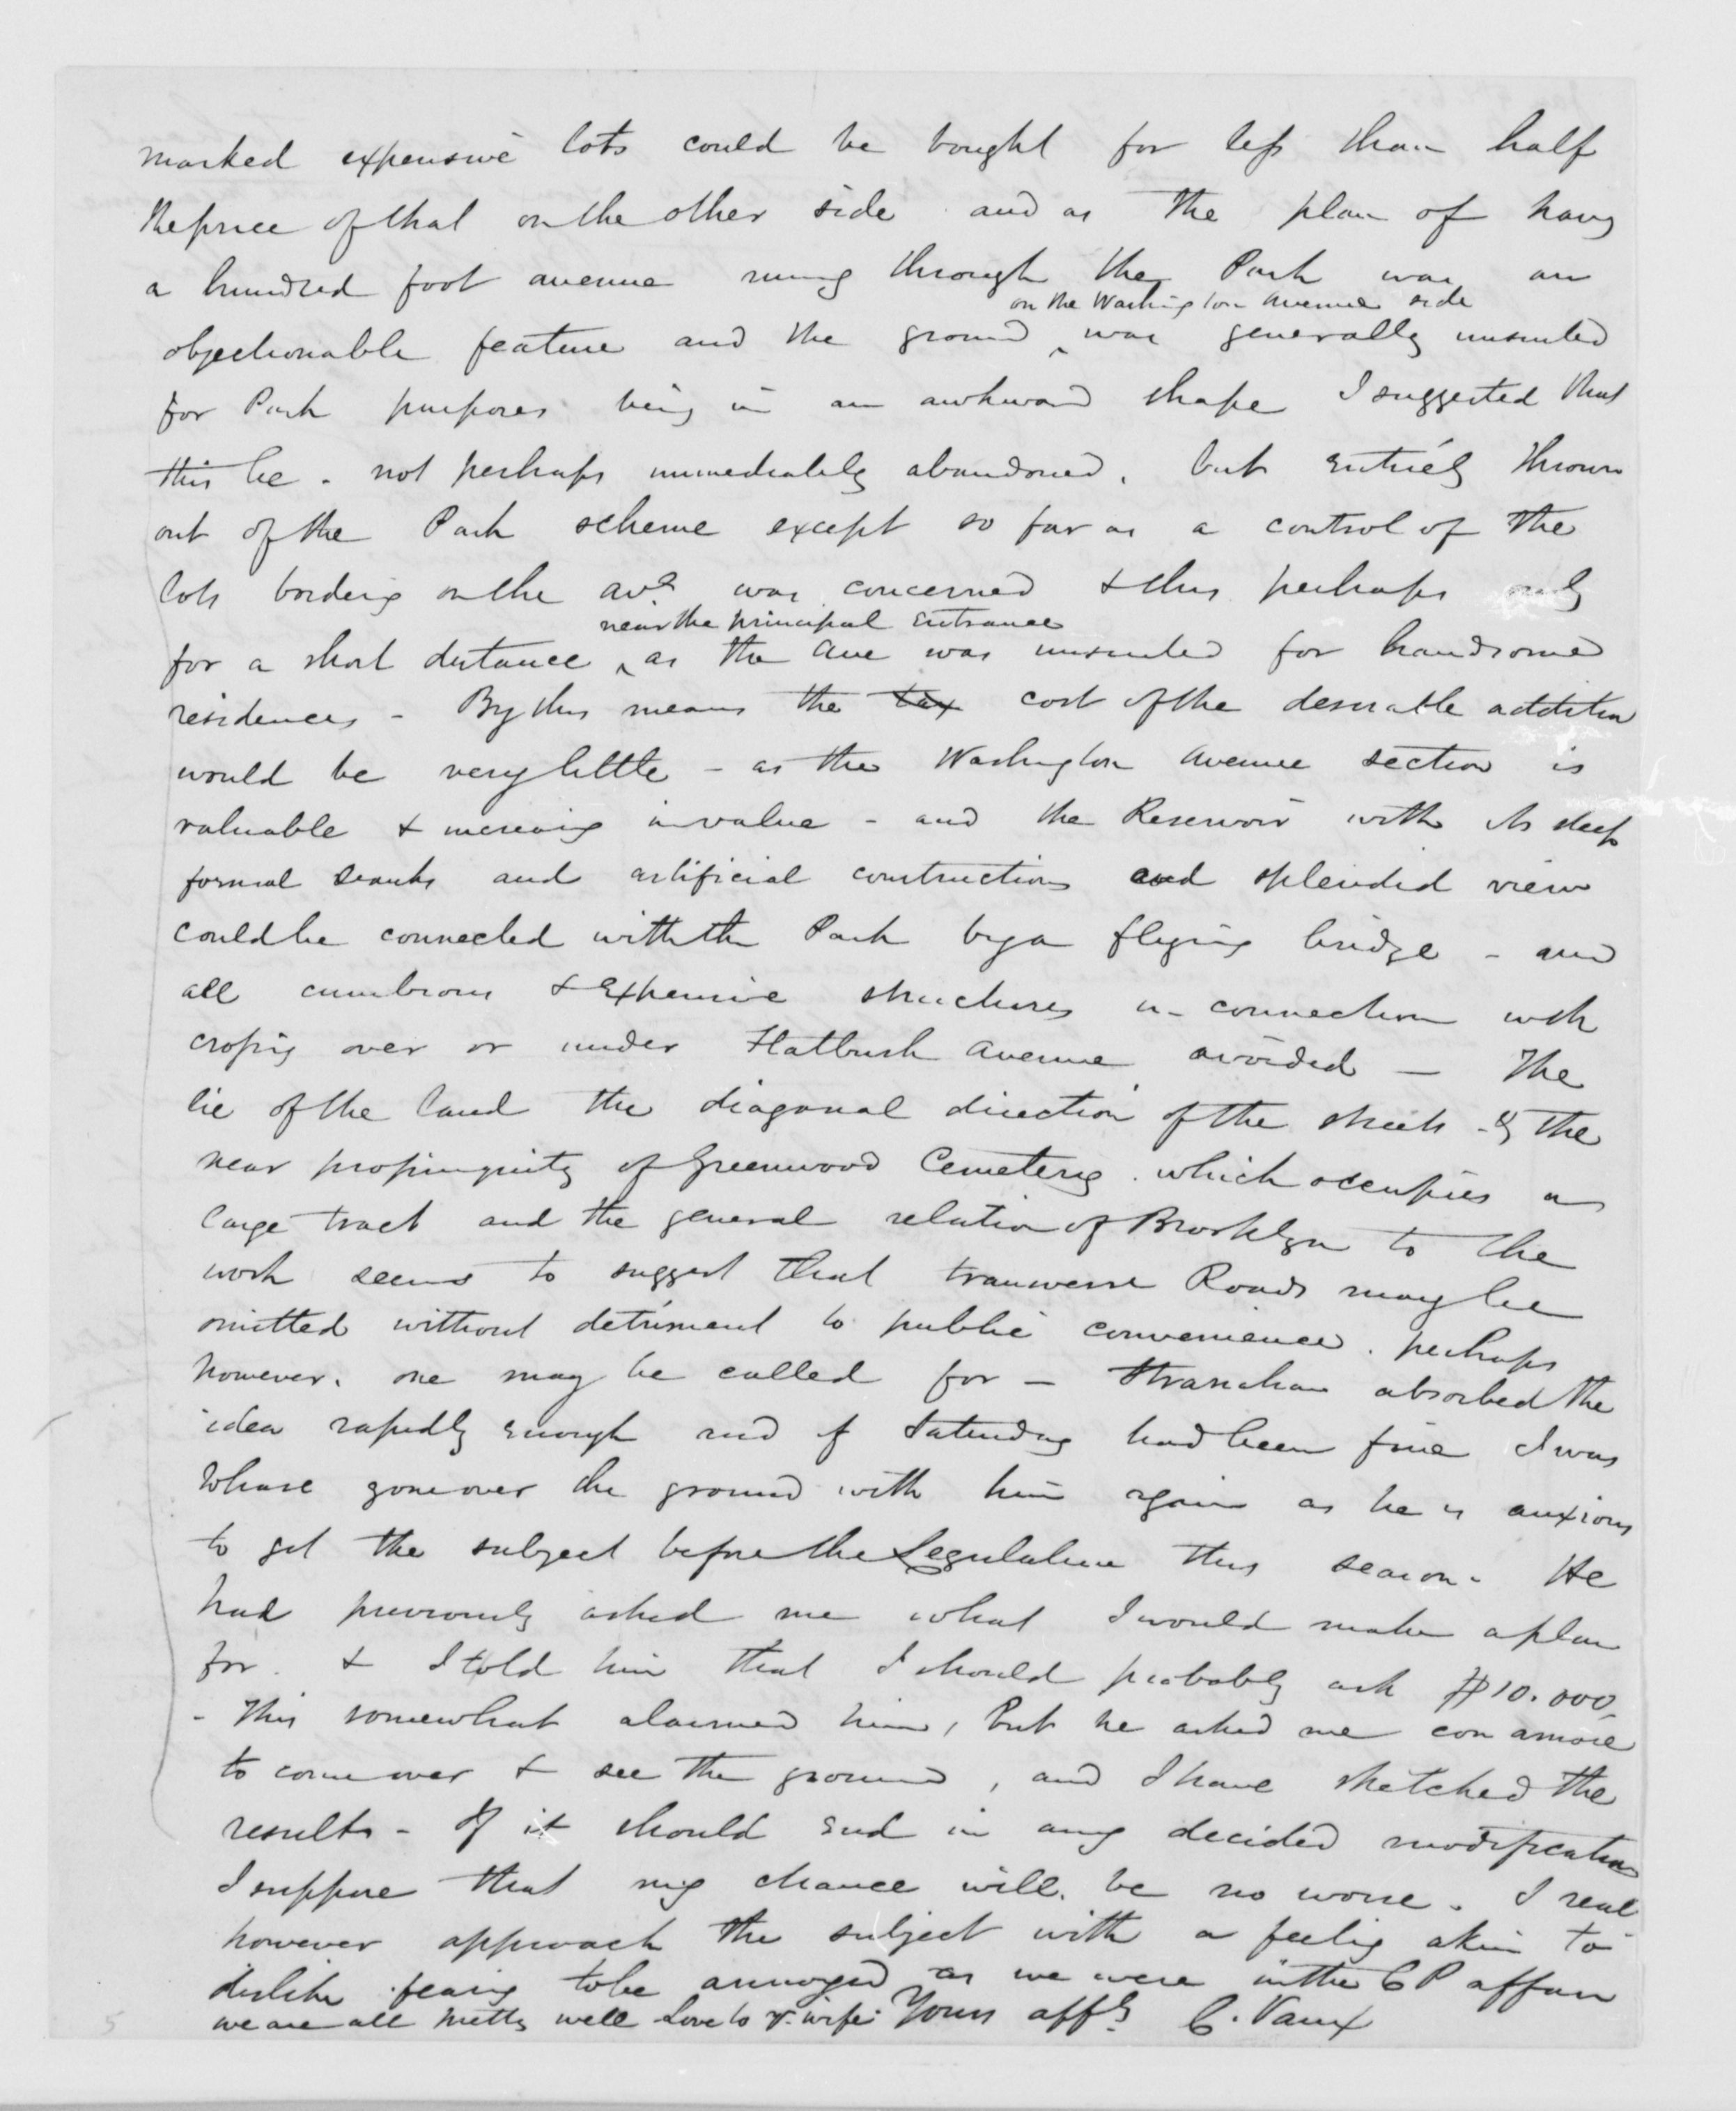 marked expensive lots could be bought for less than half
the price of that on the other side and as the plan of havg
a hundred foot avenue runng through the Park was an
on the Washington Avenue side
objectionable feature and the ground ^ was generally unsuited
for Park purposes being in an awkward shape I suggested that
this be - not perhaps immediately abandoned, but entirely thrown
out of the Park scheme except so far as a control of the
lots borderig on the ave was concerned & this perhaps only
near the principal Entrance
for a short distance ^ as the Ave was unsuited for handsome
residences - By this means the tax cost of the desirable addition
would be very little - as the Washington Avenue section is
valuable & increasing in value - and the Reservoir with its steep
formal banks and artificial constructions and splendid view
could be connected with the Park by a flying bridge - and
all cumbrous & Expensive structures in connection with
crossig over or under Flatbush Avenue avoided — The
lie of the land the diagonal direction of the streets - & the
near propinquity of Greenwood Cemetery. which occupies a
large tract and the general relation of Brooklyn to the
work seems to suggest that transverse Roads may be
omitted without detriment to public convenience. perhaps
however, one may be called for — Stranahan absorbed the
idea rapidly enough and if Saturday had been fine I was
to have gone over the ground with him again as he is anxious
to get the subject before the Legislature this season. He
had previously asked me what I would make a plan
for. & I told him that I should probably ask $10.000
- This somewhat alarmed him, but he asked me con amore
to come over & see the ground, and I have sketched the
results - If it should End in any decided modification
I suppose that my chance will be no worse. I
however approach the subject with a feelig akin to
dislike fearig to be annoyed as we were in the C P affair
we are all pretty well Love to yr. wife. Yours affly C. Vaux
5